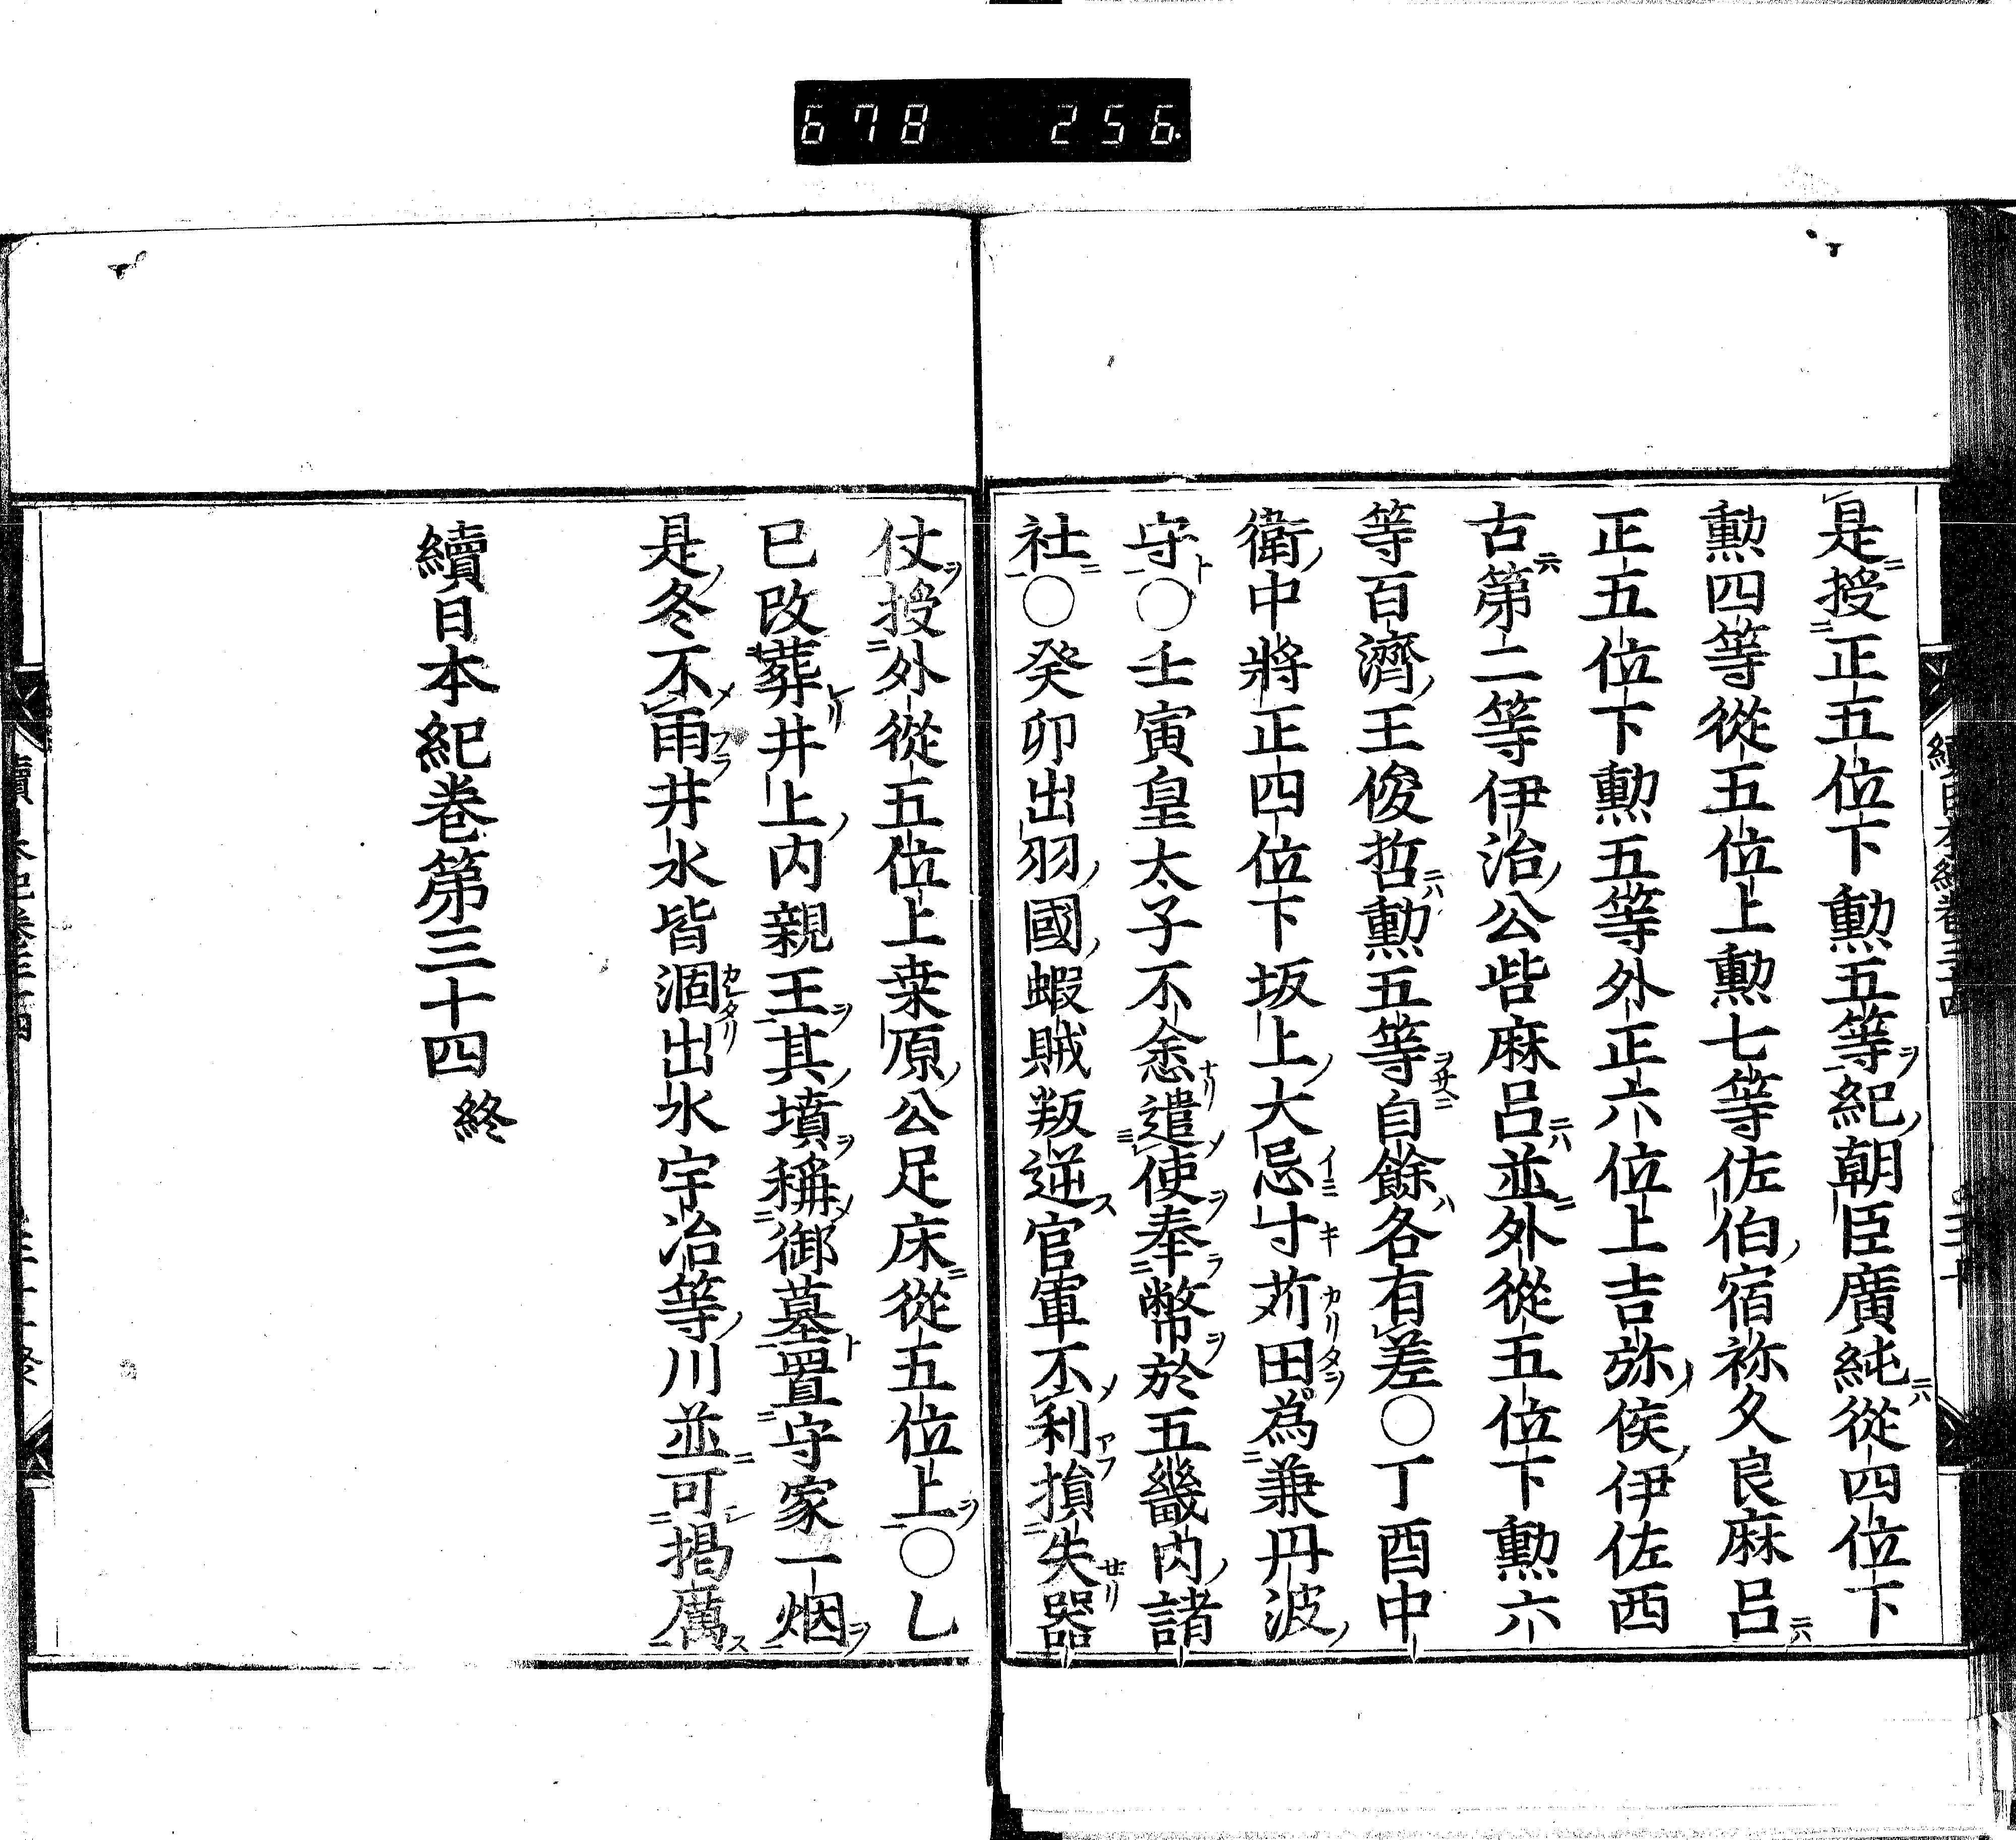 678 256.
是授正五位下勲五等紀朝臣廣純從四位下
勲四等從五位上勲七等佐伯宿祢久良麻呂
正五位下勲五等外正六位上吉弥侯伊佐西
古第二等伊治公呰麻呂並外從五位下勲六
等百濟王俊哲勲五等自餘各有差○丁酉中
衛中將正四位下坂上大忌寸苅田為兼丹波
守○壬寅皇太子不悆遣使奉幣於五畿内諸
社○癸卯出羽國蝦賊叛逆官軍不利損失器
仗授外從五位上桒原公足床從五位上○乙
巳改葬井上内親王其墳稱御墓置守家一烟
是冬不雨井水皆涸出水宇治等川並可揭厲
續日本紀巻第三十四 終